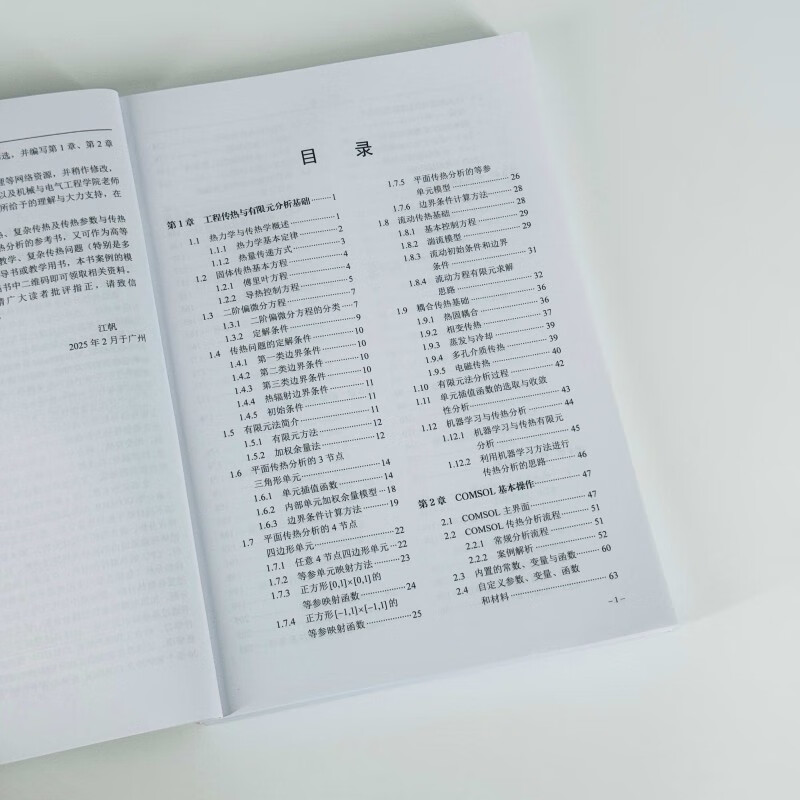 选，并编写第 1 章、第 2 章
理等网络资源，并稍作修改，
以及机械与电气工程学院老师
所给予的理解与大力支持，在
热、复杂传热及传热参数与传热
热分析的参考书，又可作为高等
教学、复杂传热问题（特别是多
导书或教学用书，本书案例的模
书中二维码即可领取相关资料。
请广大读者批评指正，请致信
江帆
2025 年 2 月于广州
目 录
第 1 章 工程传热与有限元分析基础 1
1.1 热力学与传热学概述 1
1.1.1 热力学基本定律 1
1.1.2 热量传递方式 3
1.2 固体传热基本方程 4
1.2.1 傅里叶方程 4
1.2.2 导热控制方程 5
1.3 二阶偏微分方程 7
1.3.1 二阶偏微分方程的分类 7
1.3.2 定解条件 9
1.4 传热问题的定解条件 10
1.4.1 第一类边界条件 10
1.4.2 第二类边界条件 10
1.4.3 第三类边界条件 10
1.4.4 热辐射边界条件 11
1.4.5 初始条件 11
1.5 有限元法简介 11
1.5.1 有限元方法 12
1.5.2 加权余量法 12
1.6 平面传热分析的 3 节点
三角形单元 14
1.6.1 单元插值函数 14
1.6.2 内部单元加权余量模型 18
1.6.3 边界条件计算方法 19
1.7 平面传热分析的 4 节点
四边形单元 22
1.7.1 任意 4 节点四边形单元 22
1.7.2 等参单元映射方法 23
1.7.3 正方形[0,1]×[0,1]的
等参映射函数 24
1.7.4 正方形[−1,1]×[−1,1]的
等参映射函数 25
1.7.5 平面传热分析的等参
单元模型 26
1.7.6 边界条件计算方法 28
1.8 流动传热基础 28
1.8.1 基本控制方程 29
1.8.2 湍流模型 29
1.8.3 流动初始条件和边界
条件 31
1.8.4 流动方程有限元求解
思路 32
1.9 耦合传热基础 36
1.9.1 热固耦合 36
1.9.2 相变传热 37
1.9.3 蒸发与冷却 39
1.9.4 多孔介质传热 39
1.9.5 电磁传热 40
1.10 有限元法分析过程 42
1.11 单元插值函数的选取与收敛
性分析 43
1.12 机器学习与传热分析 44
1.12.1 机器学习与传热有限元
分析 45
1.12.2 利用机器学习方法进行
传热分析的思路 46
第 2 章 COMSOL 基本操作 47
2.1 COMSOL 主界面 47
2.2 COMSOL 传热分析流程 51
2.2.1 常规分析流程 51
2.2.2 案例解析 52
2.3 内置的常数、变量与函数 60
2.4 自定义参数、变量、函数
和材料 63
– 1 –